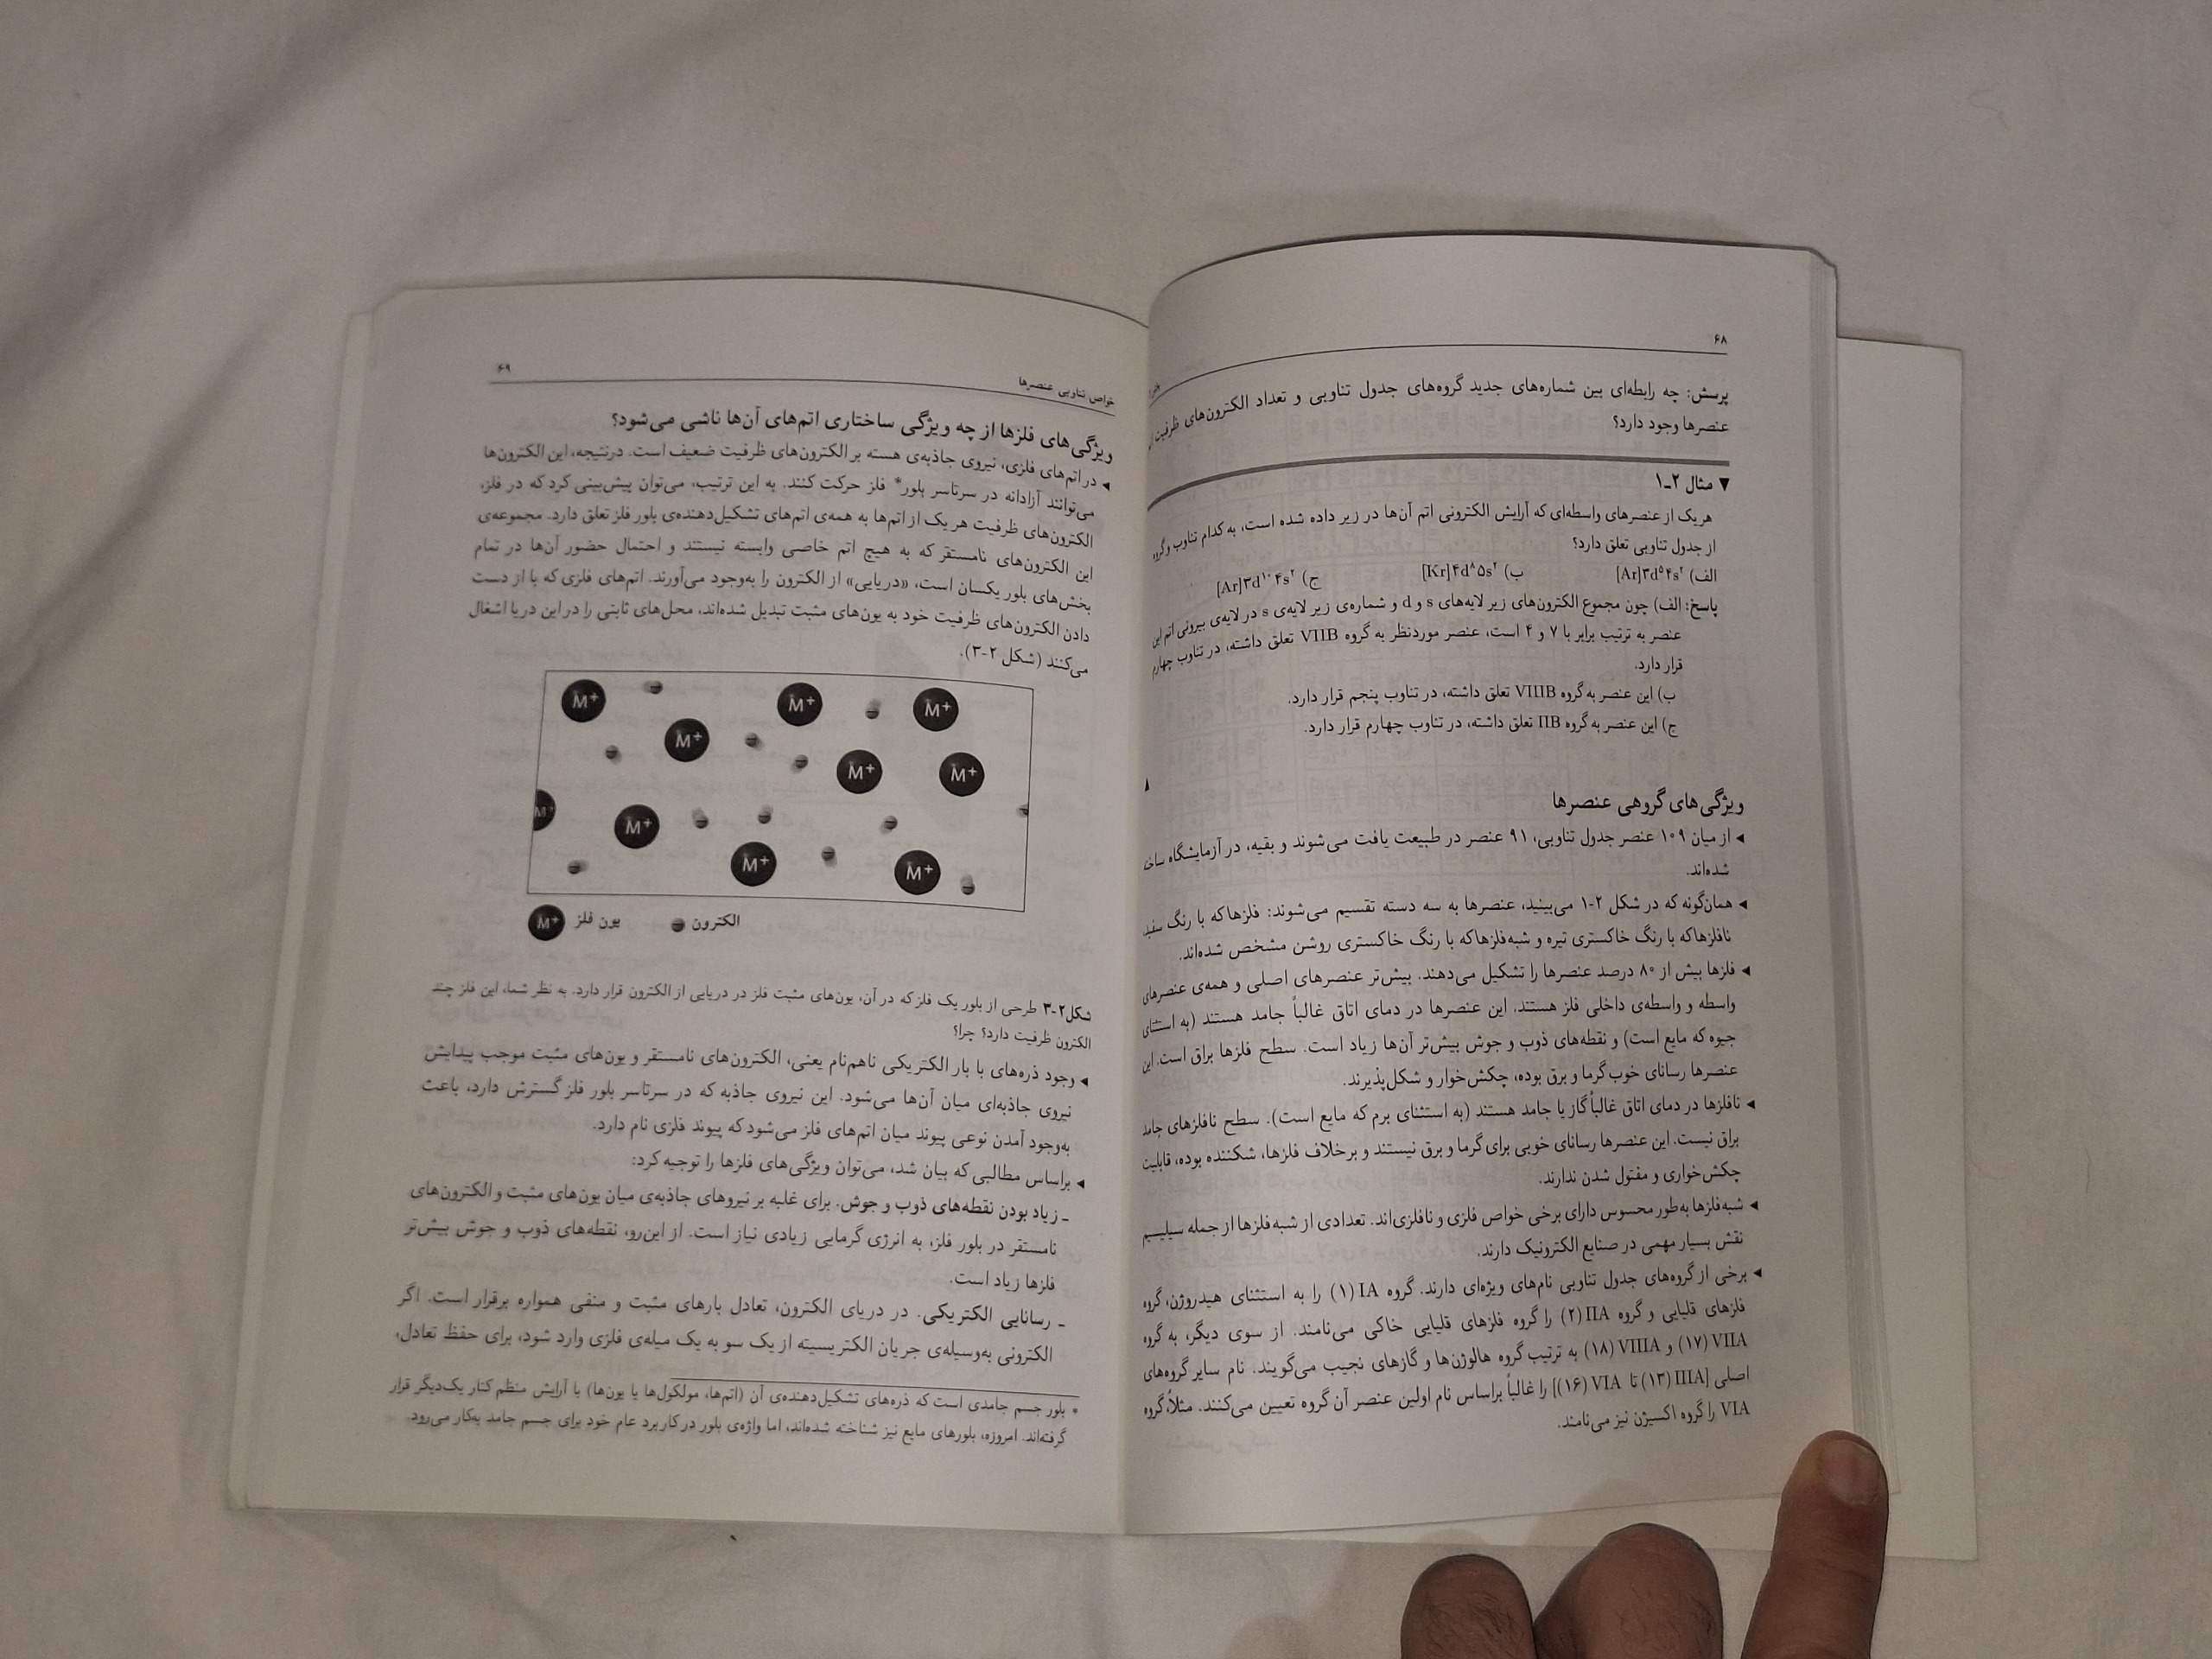 ۶۸
پرسش: چه رابطه‌ای بین شماره‌های جدید گروه‌های جدول تناوبی و تعداد الکترون‌های ظرفیت
عنصرها وجود دارد؟
▼ مثال ۲ـ۱
هر یک از عنصرهای واسطه‌ای که آرایش الکترونی اتم آن‌ها در زیر داده شده است، به کدام تناوب و گروه
از جدول تناوبی تعلق دارد؟
الف) [Ar]۳d⁵۴s² ب) [Kr]۴d⁸۵s² ج) [Ar]۳d¹⁰۴s²
پاسخ: الف) چون مجموع الکترون‌های زیر لایه‌های s و d و شماره‌ی زیر لایه‌ی s در لایه‌ی بیرونی اتم این
عنصر به ترتیب برابر با ۷ و ۴ است، عنصر موردنظر به گروه VIIB تعلق داشته، در تناوب چهارم
قرار دارد.
ب) این عنصر به گروه VIIIB تعلق داشته، در تناوب پنجم قرار دارد.
ج) این عنصر به گروه IIB تعلق داشته، در تناوب چهارم قرار دارد.
ویژگی‌های گروهی عنصرها
◄ از میان ۱۰۹ عنصر جدول تناوبی، ۹۱ عنصر در طبیعت یافت می‌شوند و بقیه، در آزمایشگاه ساخته
شده‌اند.
◄ همان‌گونه که در شکل ۲-۱ می‌بینید، عنصرها به سه دسته تقسیم می‌شوند: فلزها که با رنگ سفید،
نافلزها که با رنگ خاکستری تیره و شبه‌فلزها که با رنگ خاکستری روشن مشخص شده‌اند.
◄ فلزها بیش از ۸۰ درصد عنصرها را تشکیل می‌دهند. بیش‌تر عنصرهای اصلی و همه‌ی عنصرهای
واسطه و واسطه‌ی داخلی فلز هستند. این عنصرها در دمای اتاق غالباً جامد هستند (به استثنای
جیوه که مایع است) و نقطه‌های ذوب و جوش بیش‌تر آن‌ها زیاد است. سطح فلزها براق است. این
عنصرها رسانای خوب گرما و برق بوده، چکش‌خوار و شکل‌پذیرند.
◄ نافلزها در دمای اتاق غالباً گاز یا جامد هستند (به استثنای برم که مایع است). سطح نافلزهای جامد
براق نیست. این عنصرها رسانای خوبی برای گرما و برق نیستند و برخلاف فلزها، شکننده بوده، قابلیت
چکش‌خواری و مفتول شدن ندارند.
◄ شبه‌فلزها به‌طور محسوس دارای برخی خواص فلزی و نافلزی‌اند. تعدادی از شبه‌فلزها از جمله سیلیسیم
نقش بسیار مهمی در صنایع الکترونیک دارند.
◄ برخی از گروه‌های جدول تناوبی نام‌های ویژه‌ای دارند. گروه IA (۱) را به استثنای هیدروژن، گروه
فلزهای قلیایی و گروه IIA (۲) را گروه فلزهای قلیایی خاکی می‌نامند. از سوی دیگر، به گروه
VIIA (۱۷) و VIIIA (۱۸) به ترتیب گروه هالوژن‌ها و گازهای نجیب می‌گویند. نام سایر گروه‌های
اصلی [IIIA (۱۳) تا VIA (۱۶)] را غالباً براساس نام اولین عنصر آن گروه تعیین می‌کنند. مثلاً، گروه
VIA را گروه اکسیژن نیز می‌نامند.
خواص تناوبی عنصرها ۶۹
ویژگی‌های فلزها از چه ویژگی ساختاری اتم‌های آن‌ها ناشی می‌شود؟
◄ در اتم‌های فلزی، نیروی جاذبه‌ی هسته بر الکترون‌های ظرفیت ضعیف است. درنتیجه، این الکترون‌ها
می‌توانند آزادانه در سرتاسر بلور* فلز حرکت کنند. به این ترتیب، می‌توان پیش‌بینی کرد که در فلز،
الکترون‌های ظرفیت هر یک از اتم‌ها به همه‌ی اتم‌های تشکیل‌دهنده‌ی بلور فلز تعلق دارد. مجموعه‌ی
این الکترون‌های نامستقر که به هیچ اتم خاصی وابسته نیستند و احتمال حضور آن‌ها در تمام
بخش‌های بلور یکسان است، «دریایی» از الکترون را به‌وجود می‌آورند. اتم‌های فلزی که با از دست
دادن الکترون‌های ظرفیت خود به یون‌های مثبت تبدیل شده‌اند، محل‌های ثابتی را در این دریا اشغال
می‌کنند (شکل ۲-۳).
M⁺ M⁺ M⁺
M⁺ M⁺ M⁺
M⁺ M⁺
M⁺ M⁺
الکترون یون فلز M⁺
شکل۲-۳ طرحی از بلور یک فلز که در آن، یون‌های مثبت فلز در دریایی از الکترون قرار دارد. به نظر شما، این فلز چند
الکترون ظرفیت دارد؟ چرا؟
◄ وجود ذره‌های با بار الکتریکی ناهم‌نام یعنی، الکترون‌های نامستقر و یون‌های مثبت موجب پیدایش
نیروی جاذبه‌ای میان آن‌ها می‌شود. این نیروی جاذبه که در سرتاسر بلور فلز گسترش دارد، باعث
به‌وجود آمدن نوعی پیوند میان اتم‌های فلز می‌شود که پیوند فلزی نام دارد.
◄ براساس مطالبی که بیان شد، می‌توان ویژگی‌های فلزها را توجیه کرد:
ـ زیاد بودن نقطه‌های ذوب و جوش. برای غلبه بر نیروهای جاذبه‌ی میان یون‌های مثبت و الکترون‌های
نامستقر در بلور فلز، به انرژی گرمایی زیادی نیاز است. از این‌رو، نقطه‌های ذوب و جوش بیش‌تر
فلزها زیاد است.
ـ رسانایی الکتریکی. در دریای الکترون، تعادل بارهای مثبت و منفی همواره برقرار است. اگر
الکترونی به‌وسیله‌ی جریان الکتریسیته از یک سو به یک میله‌ی فلزی وارد شود، برای حفظ تعادل،
* بلور جسم جامدی است که ذره‌های تشکیل‌دهنده‌ی آن (اتم‌ها، مولکول‌ها یا یون‌ها) با آرایش منظم کنار یک‌دیگر قرار
گرفته‌اند. امروزه، بلورهای مایع نیز شناخته شده‌اند، اما واژه‌ی بلور در کاربرد عام خود برای جسم جامد به‌کار می‌رود.